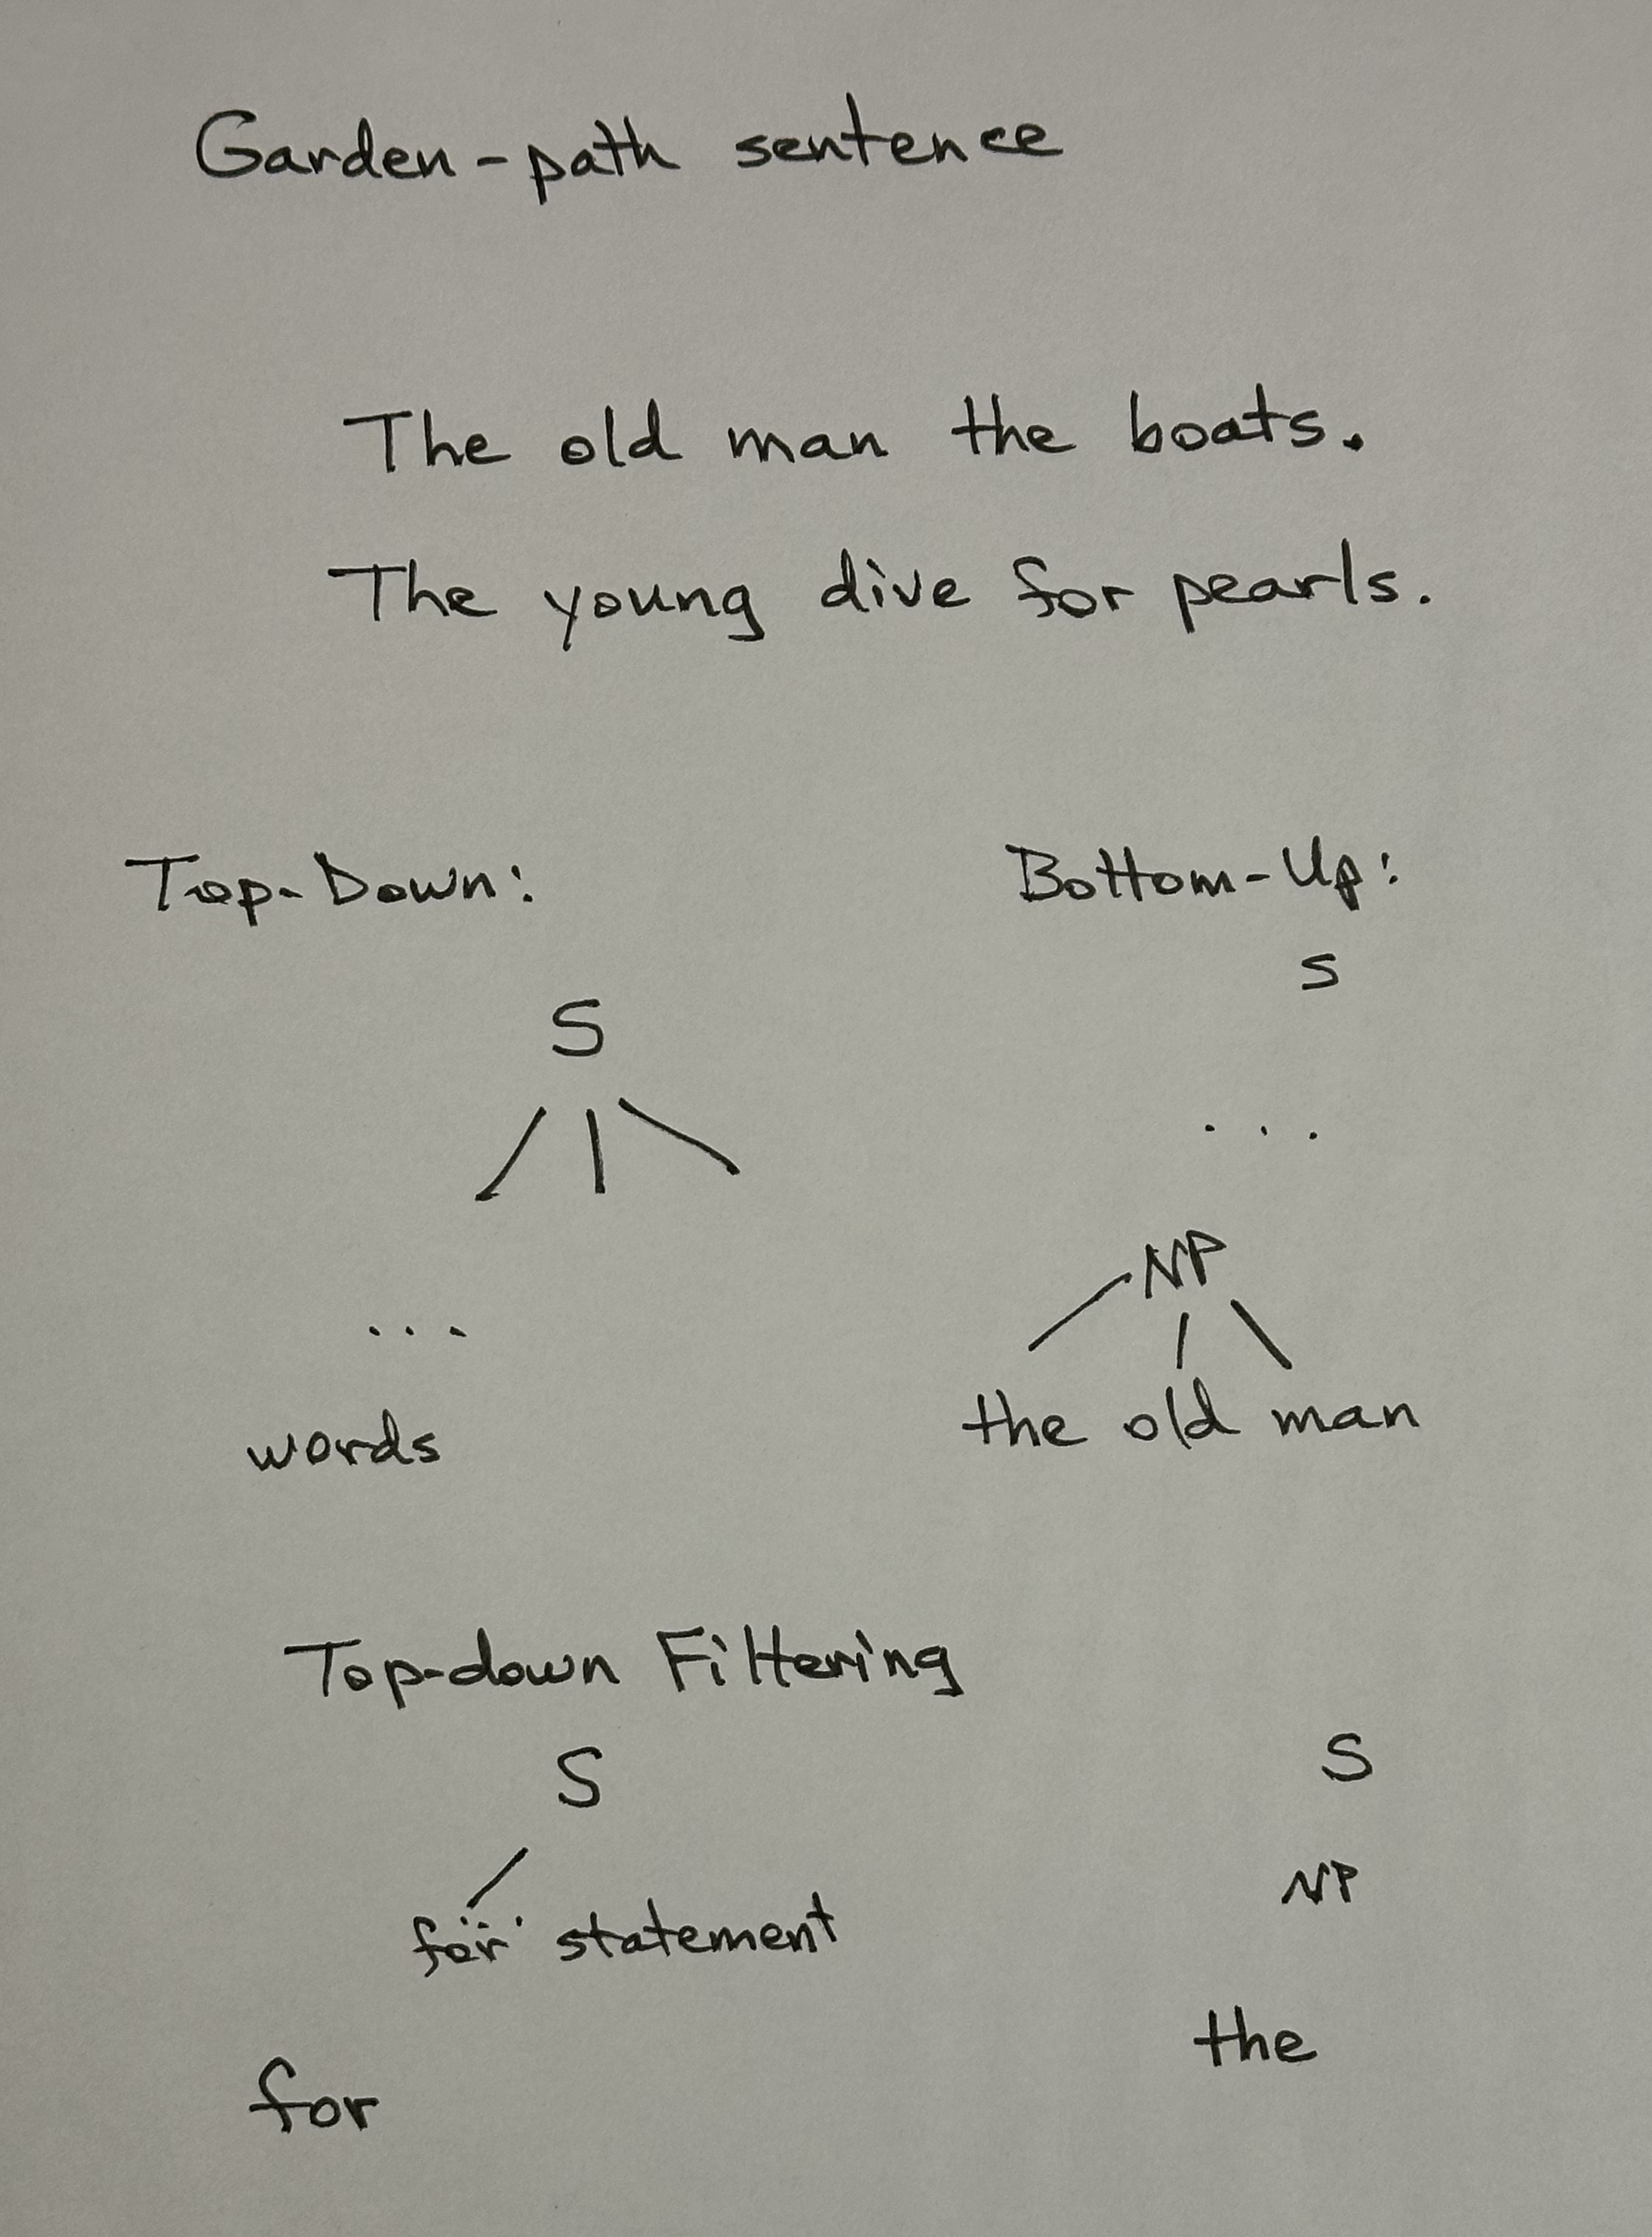 Garden-path sentence
The old man the boats.
The young dive for pearls.
Top-Down:
S
...
words
Bottom-Up:
S
...
NP
the old man
Top-down Filtering
S
for statement
for
S
NP
the